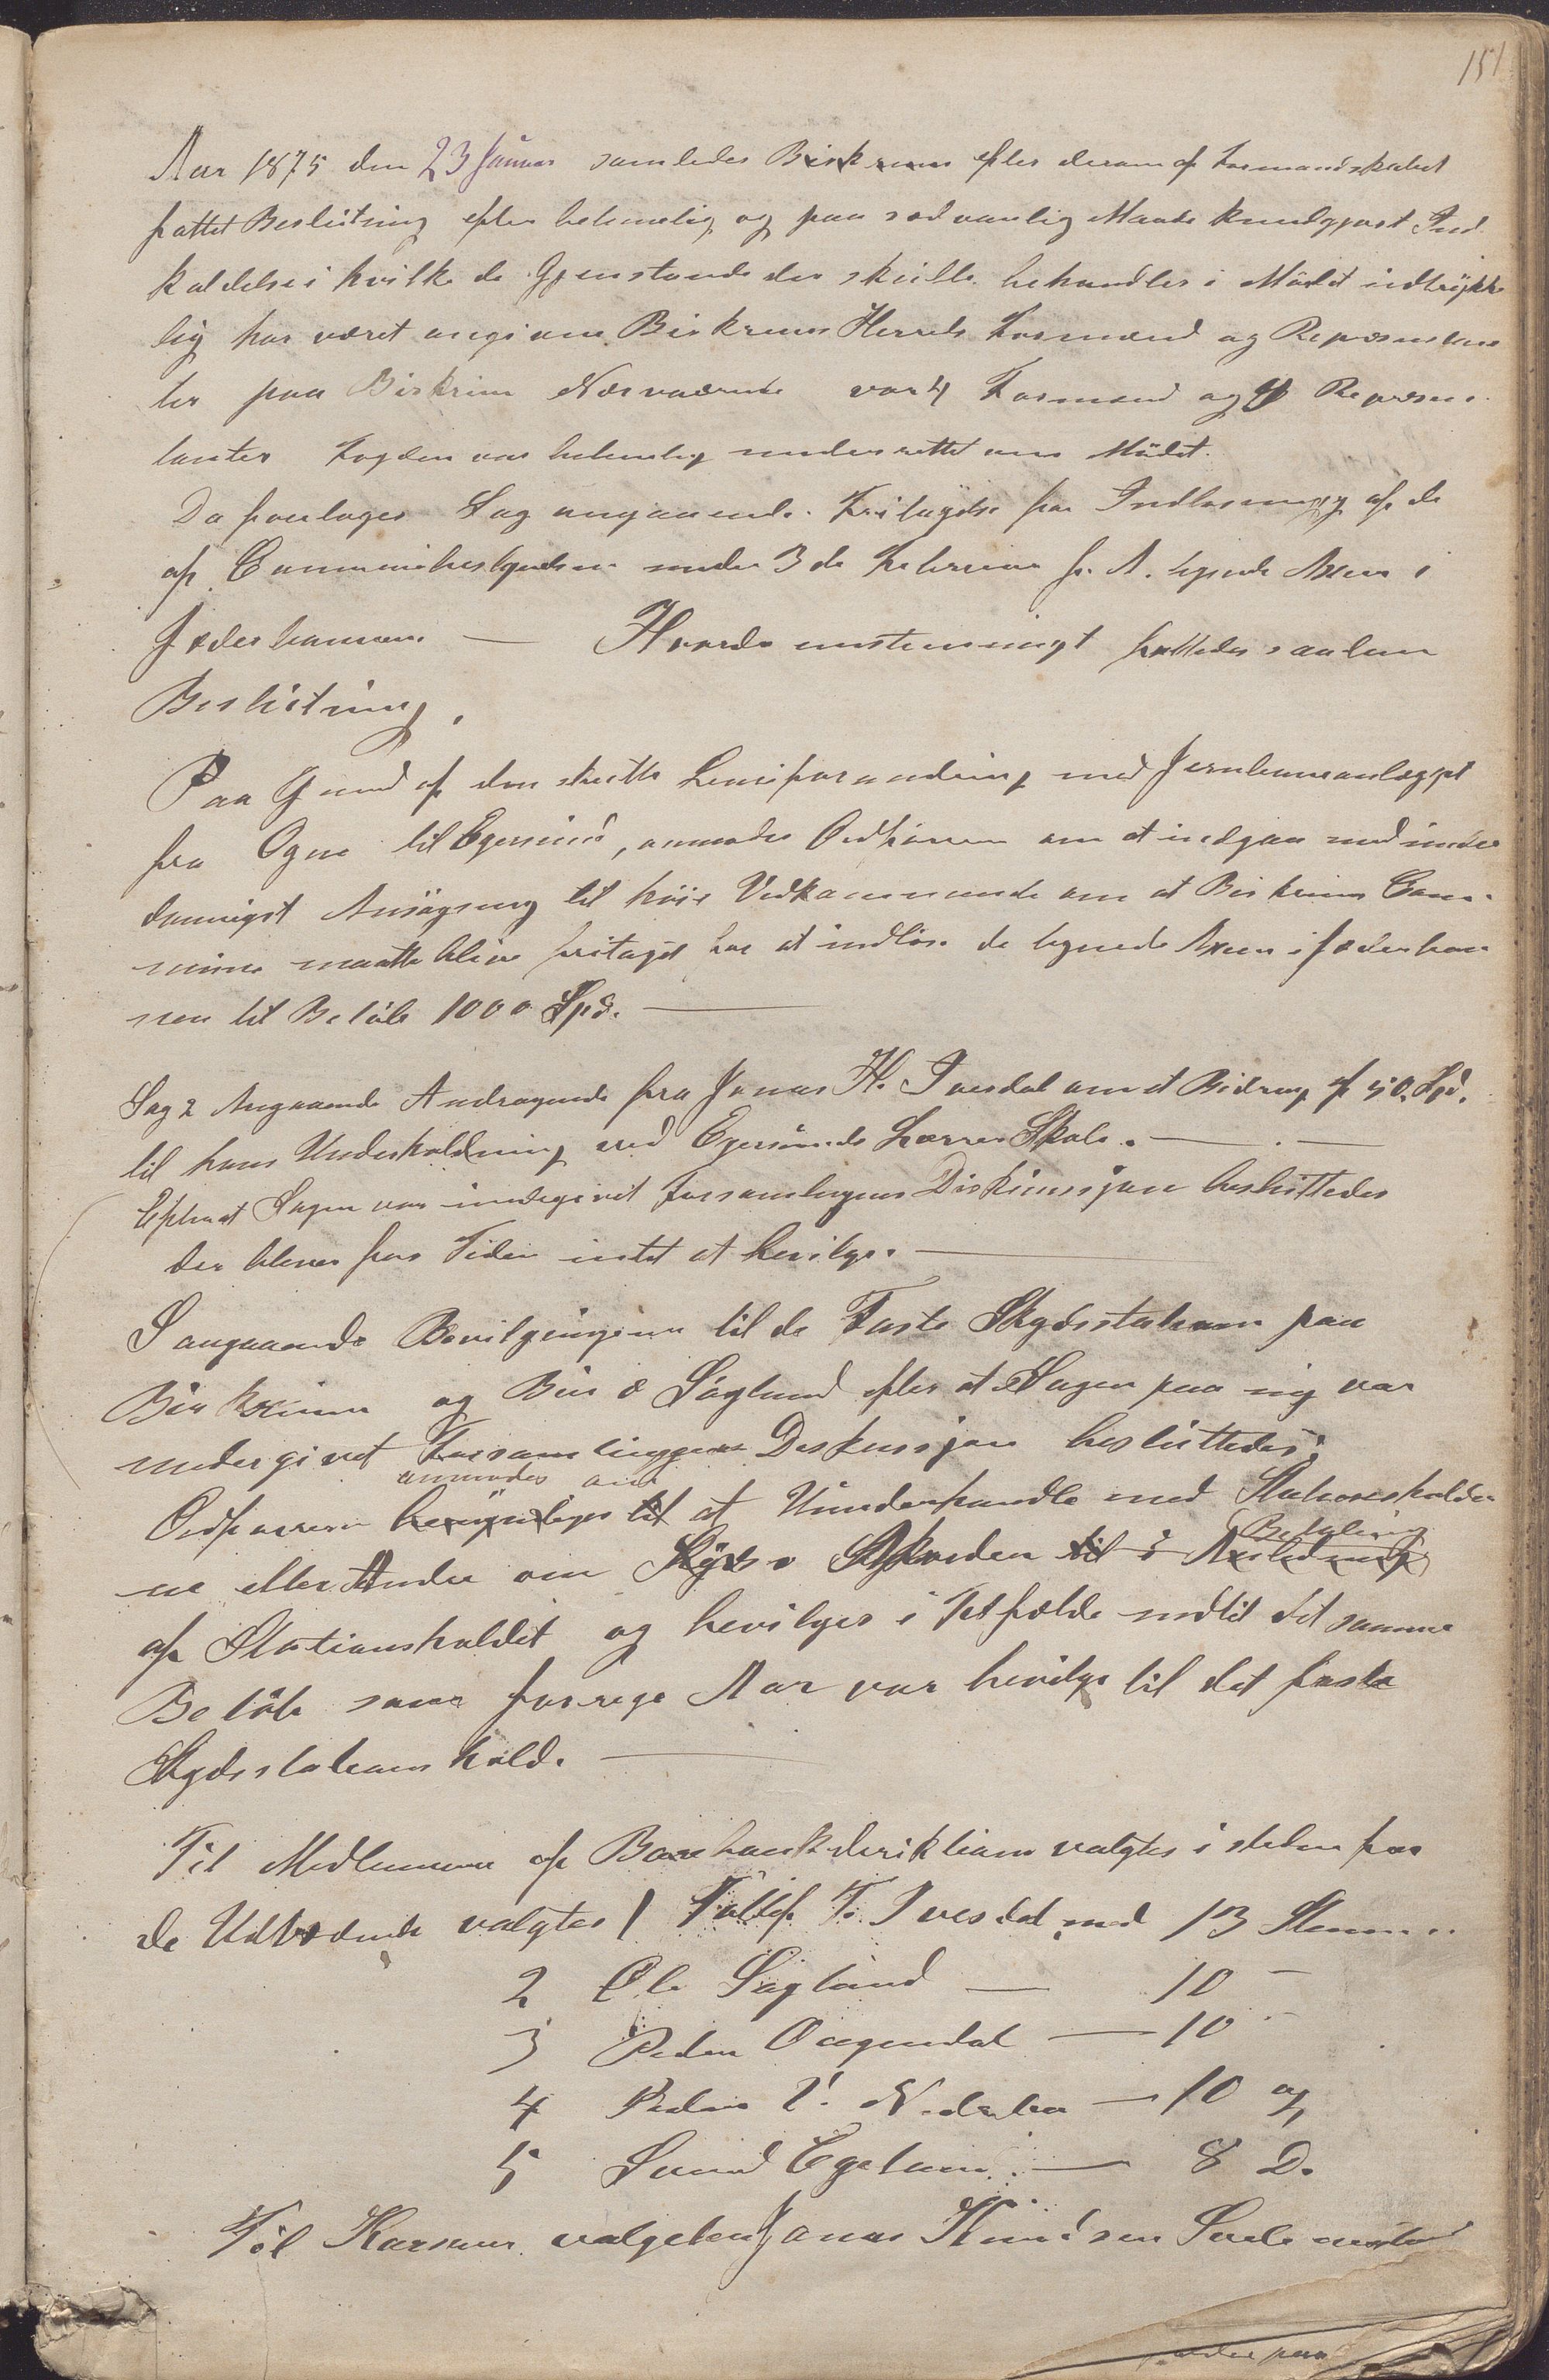 151
Aar 1875 den 23 Januar samledes Birkrem efter derom af Formandskabet
fattet Beslutning efter behørig og paa sædvanlig Maade kundgjort Ind
kaldelse i hvilke de Gjenstande der skulle behandles i Mødet udtrykke
lig har været angivne Birkrems Herreds Formænd og Repræsentan
ter paa Birkrim Nærværende var 4 Formænd og 9 Repræsen
tanter Fogden var behørig underrettet om Mødet.
Da foretoges Sag angaaende Fritagelse for Indløsning af de
af Communebestyrelsen under 3de Februar f. A. tegnede Axier i
Jæderbanen — Hvorda enstemmigt fattedes saadan
Beslutning.
Paa Grund af den skeette Linieforandring med Jernbaneanlægget
fra Ogne til Egersund, anmodes Ordføreren om at indgaa med under
danigst Ansøgning til høie Vedkommende om at Birkrims Com-
mune maatte blive fritaget for at indløse de tegnede Axier i Jæderba
nen til Beløb 1000 Spd. —
Sag 2 Angaaende Andragende fra Jonas H. Ivesdal om et Bidrag af 50. Spd.
til hans Underholdning ved Egersunds Lærer Skole. —
Efterat Sagen var undergivet forsamlingens Diskussjon besluttedes
der bliver for Tiden intet at bevilge. —
S angaaende Bevilgningerne til de Faste Skydsstationer paa
Birkrim og Bue & Søglund efter at Sagen paa ny var
undergivet Forsamlingens Deskussjon besluttedes:
anmodes om
Ordføreren bemyndiges til at Underhandle med Stationsholder
Betaling
ne eller Andre om Skyds Akorden til i Anledning
af Stationsholdet og bevilges i Tilfælde indtil det samme
Beløb som forrige Aar var bevilge til det faste
Skydsstations hold. —
Til Medlemmer af Barebankdirektion valgtes i steden for
de Udtrædende valgtes 1 Tollef T. Ivesdal med 13 Stemmer
2 Ole Sagland — 10 —
3 Peder Ougendal — 10 —
4 Peder T. Nedrebø — 10 og
5 Svend Egeland — 8 D.
Til Kasserer valgtes Jonas Knudsen Svele